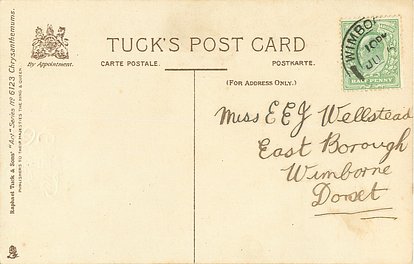 TUCK'S POST CARD
CARTE POSTALE.
POSTKARTE.
(FOR ADDRESS ONLY.)
By Appointment.
Raphael Tuck & Sons' "Art" Series No 6123 Chrysanthemums.
PUBLISHERS TO THEIR MAJESTIES THE KING & QUEEN.
WIMBO
HALF PENNY
Miss E E J Wellstead
East Borough
Wimborne
Dorset